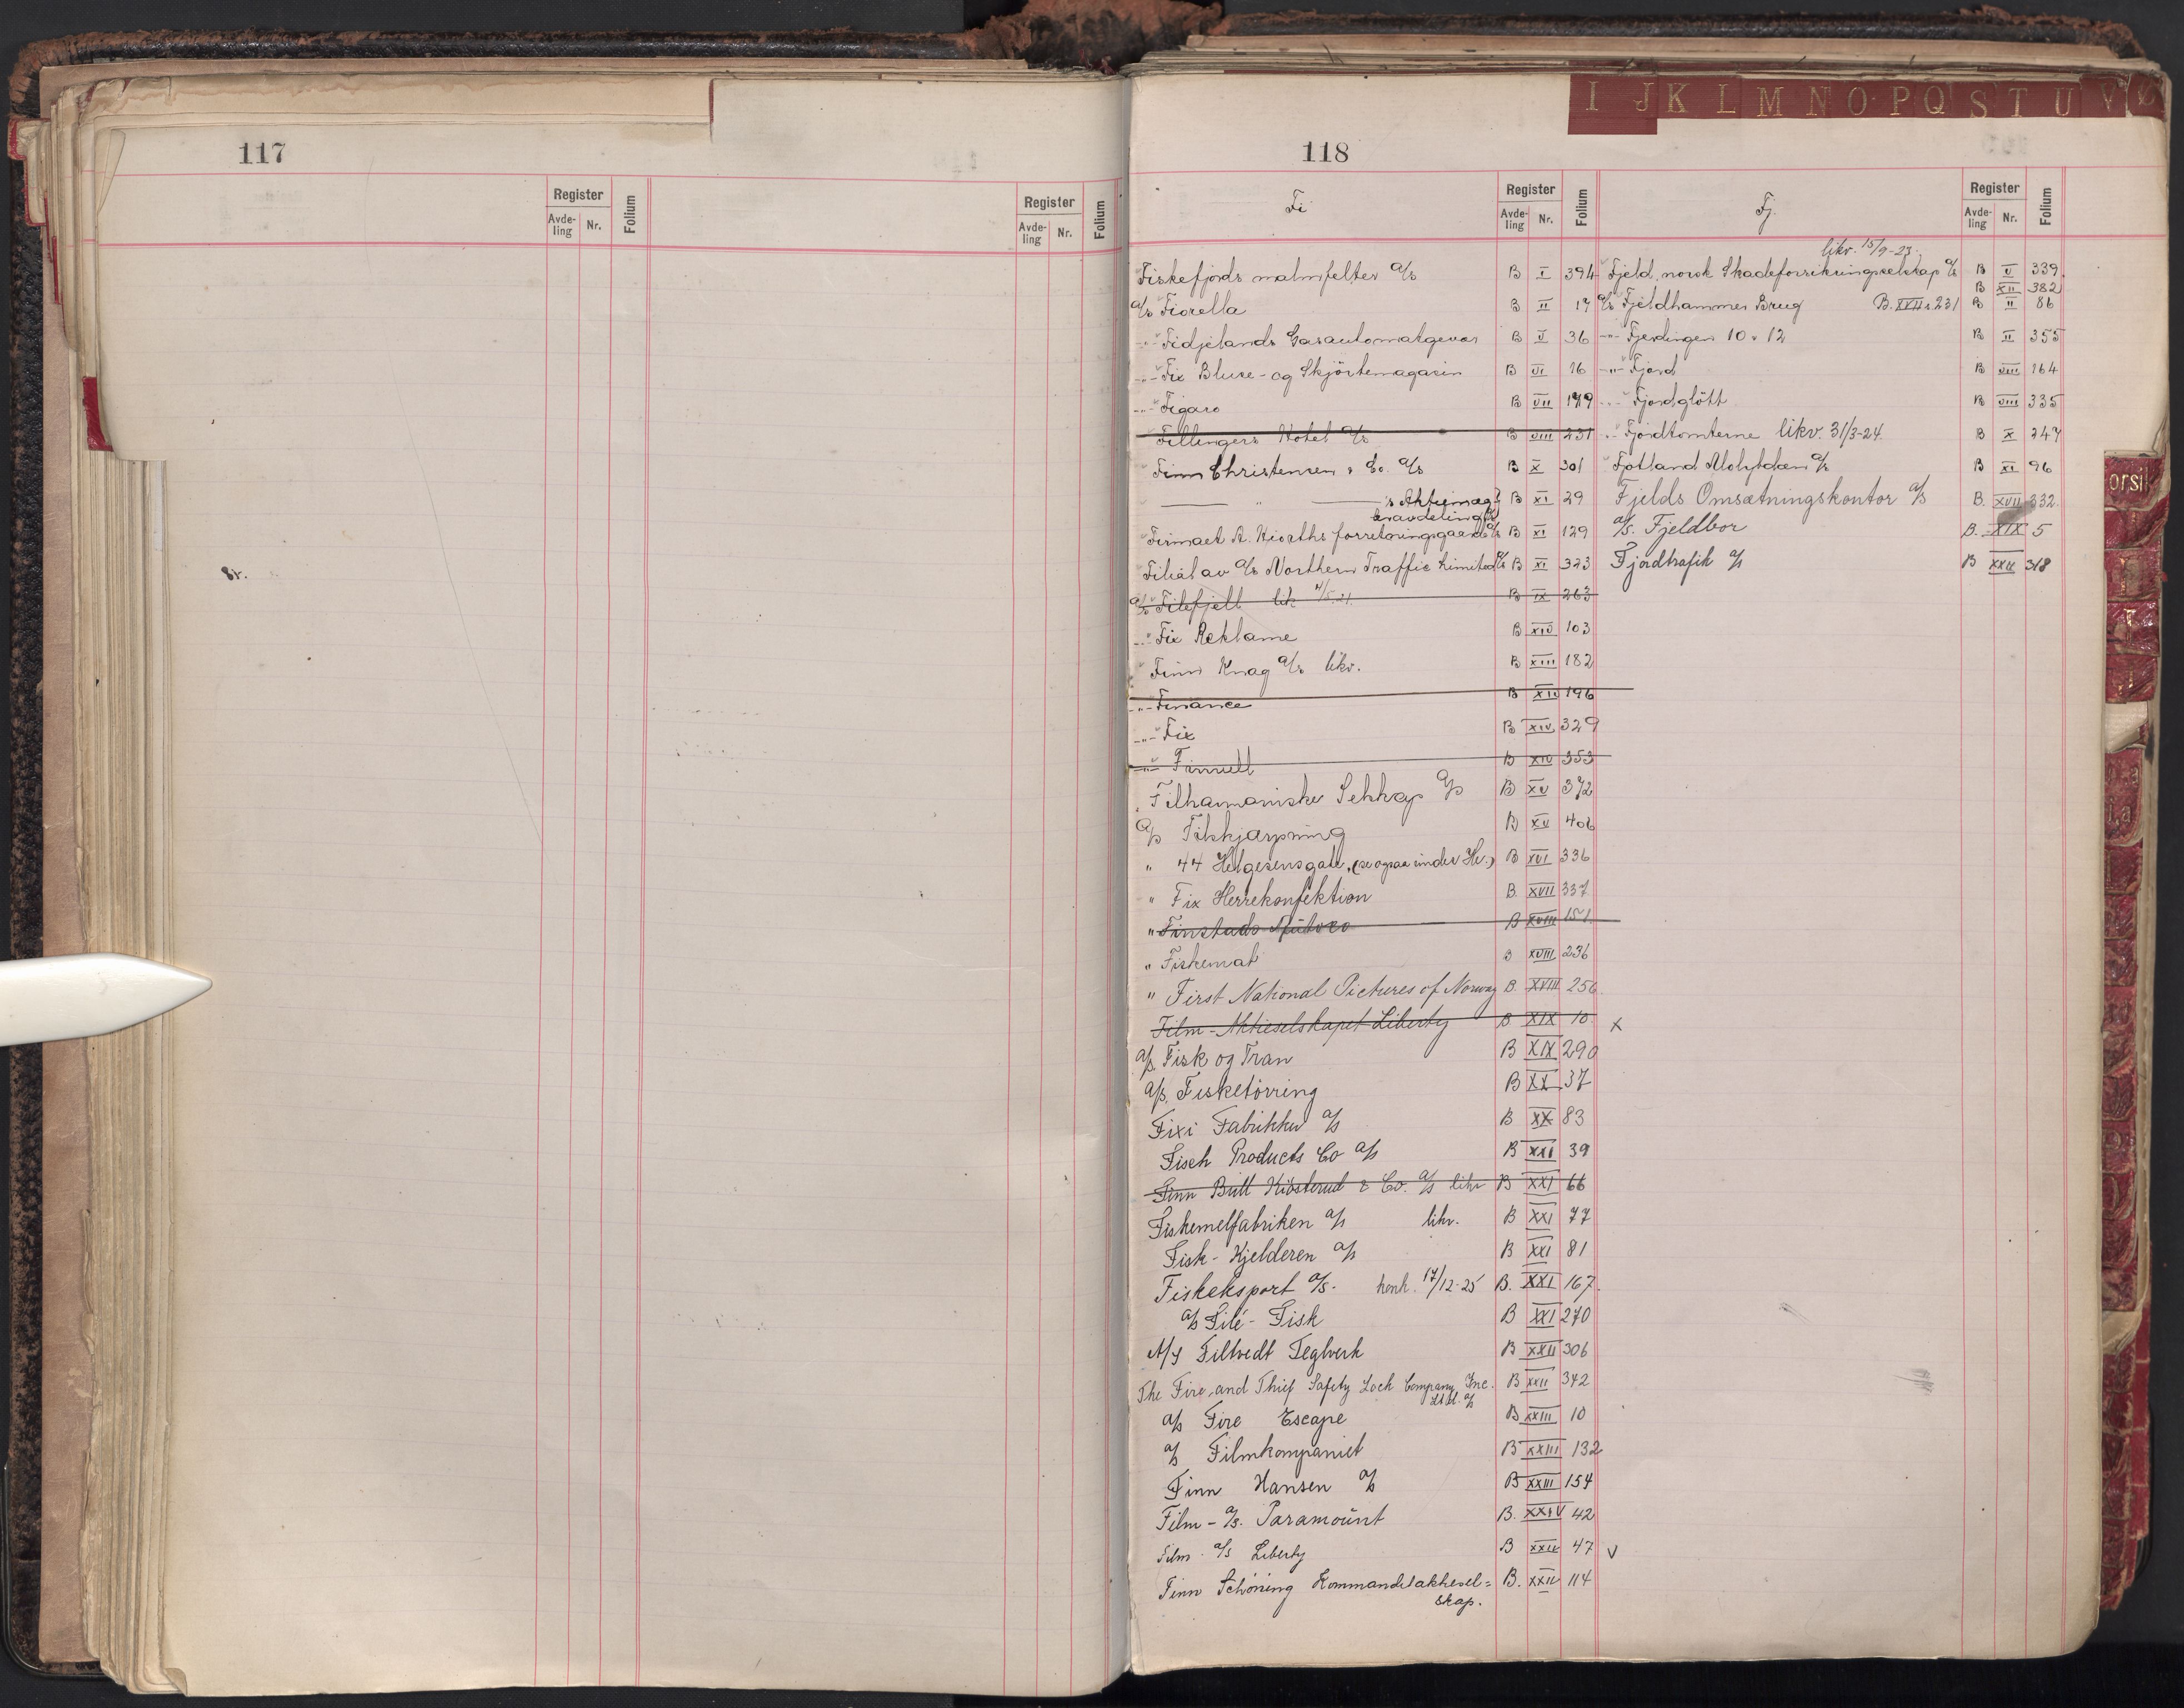 117
Register
Avde-
ling
Nr.
Folium
Register
Avde-
ling
Nr.
Folium
8r.
I J K L M N O P Q S T U V Ø
118
Fi
Register
Avde-
ling
Nr.
Folium
Fiskefjords malmfelter A/s B I 394
A/s Fiorella B II 17
-"- Fidjelands Gasautomatgevær B V 36
-"- Fix Bluse- og Skjörtemagasin B VI 16
-"- Figaro B VII 179
Fillingers Hotel A/s B VIII 231
Finn Christensen & Co. A/s B X 301
— " — 's Aktiemæg- B XI 29
leravdeling A/s
Firmaet A. Kiærths forretningsgaard A/s B XI 129
Filial av A/s Northern Traffic Limited A/s B XI 323
A/s Filefjell lik 4/5.21. B IX 263
-"- Fix Reklame B XIV 103
Finn Knag A/s likv. B XIII 182
-"- Finance B XIV 196
-"- Fix B XIV 329
-"- Finnell B XIV 353
Filharmoniske Selskap A/s B XV 372
A/s Filskjærpning B XV 406
" 44 Helgesensgate, (se ogsaa under He.) B XVI 336
" Fix Herrekonfektion B. XVII 337
" Finstads Autoco B XVIII 151.
" Fiskemat B XVIII 236
" First National Pictures of Norway B. XVIII 256
Film-Aktieselskapet Liberty B XIX 10. x
A/s. Fisk og Tran B XIX 290
A/s. Fisketörring B XX 37
Fixi Fabrikker A/s B XX 83
Fisch Products Co A/s B XXI 39
Finn Bull Kiösterud & Co. A/s likv B XXI 66
Fiskemelfabriken A/s likv. B XXI 77
Fisk-Kjelderen A/s B XXI 81
Fiskeksport A/s. konk. 17/12-25 B. XXI 167.
A/s Filé-Fisk B XXI 270
A/S Filtvedt Teglverk B XXII 306
The Fire and Thief Safety Lock Company Inc. B XXII 342
Ltd. A/s
A/s Fire Escape B XXIII 10
A/s Filmkompaniet B XXIII 132
Finn Hansen A/s B XXIII 154
Film-A/s. Paramount B. XXIV 42
Film-A/s Liberty B XXIV 47 v
Finn Schöning Kommanditaktiesel= B. XXIV 114
skap.
Fj.
Register
Avde-
ling
Nr.
Folium
likv. 15/9-23.
Fjeld, norsk Skadeforsikringsselskap A/s B V 339
B XII 382
A/s Fjeldhammer Brug B. XVII s. 231 B II 86
-"- Fjerdingen 10 & 12 B II 355
-"- Fjord B VIII 164
-"- Fjordglött B VIII 335
-"- Fjordtomterne likv. 31/3-24. B X 247
Fjotland Molybdæn A/s B XI 96
Fjelds Omsætningskontor A/s B. XVII 332.
A/s. Fjeldbor B. XIX 5
Fjordtrafik A/s B XXII 318